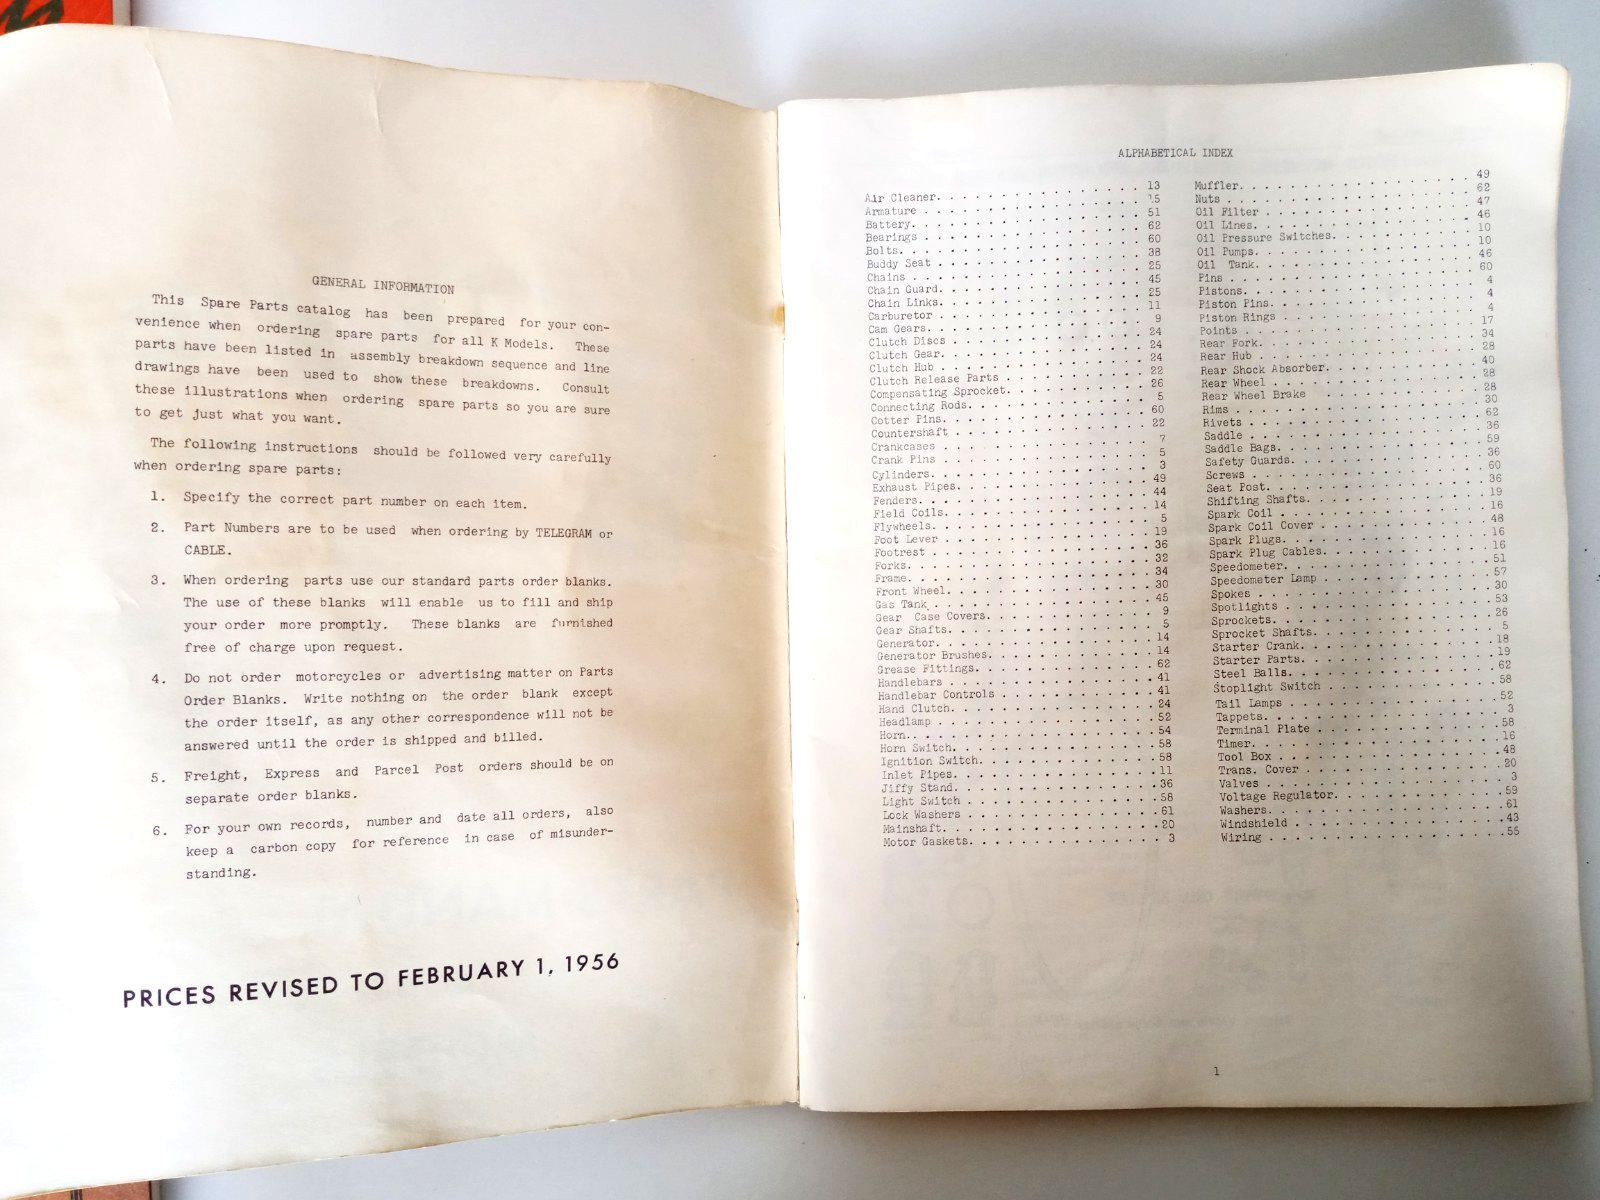 GENERAL INFORMATION
This Spare Parts catalog has been prepared for your con-
venience when ordering spare parts for all K Models. These
parts have been listed in assembly breakdown sequence and line
drawings have been used to show these breakdowns. Consult
these illustrations when ordering spare parts so you are sure
to get just what you want.
The following instructions should be followed very carefully
when ordering spare parts:
1. Specify the correct part number on each item.
2. Part Numbers are to be used when ordering by TELEGRAM or
CABLE.
3. When ordering parts use our standard parts order blanks.
The use of these blanks will enable us to fill and ship
your order more promptly. These blanks are furnished
free of charge upon request.
4. Do not order motorcycles or advertising matter on Parts
Order Blanks. Write nothing on the order blank except
the order itself, as any other correspondence will not be
answered until the order is shipped and billed.
5. Freight, Express and Parcel Post orders should be on
separate order blanks.
6. For your own records, number and date all orders, also
keep a carbon copy for reference in case of misunder-
standing.
PRICES REVISED TO FEBRUARY 1, 1956
ALPHABETICAL INDEX
Air Cleaner. . . . 13
Armature . . . . 15
Battery. . . . 51
Bearings . . . . 62
Bolts. . . . 60
Buddy Seat . . . . 38
Chains . . . . 25
Chain Guard. . . . 45
Chain Links. . . . 25
Carburetor . . . . 11
Cam Gears. . . . 9
Clutch Discs . . . . 24
Clutch Gear. . . . 24
Clutch Hub . . . . 24
Clutch Release Parts . . . . 22
Compensating Sprocket. . . . 26
Connecting Rods. . . . 5
Cotter Pins. . . . 60
Countershaft . . . . 22
Crankcases . . . . 7
Crank Pins . . . . 5
Cylinders. . . . 3
Exhaust Pipes. . . . 49
Fenders. . . . 44
Field Coils. . . . 14
Flywheels. . . . 5
Foot Lever . . . . 19
Footrest . . . . 36
Forks. . . . 32
Frame. . . . 34
Front Wheel. . . . 30
Gas Tank . . . . 45
Gear Case Covers. . . . 9
Gear Shafts. . . . 5
Generator. . . . 14
Generator Brushes. . . . 14
Grease Fittings. . . . 62
Handlebars . . . . 41
Handlebar Controls . . . . 41
Hand Clutch. . . . 24
Headlamp . . . . 52
Horn. . . . 54
Horn Switch. . . . 58
Ignition Switch. . . . 58
Inlet Pipes. . . . 11
Jiffy Stand. . . . 36
Light Switch . . . . 58
Lock Washers . . . . 61
Mainshaft. . . . 20
Motor Gaskets. . . . 3
Muffler. . . . 49
Nuts . . . . 62
Oil Filter . . . . 47
Oil Lines. . . . 46
Oil Pressure Switches. . . . 10
Oil Pumps. . . . 10
Oil Tank. . . . 46
Pins . . . . 60
Pistons. . . . 4
Piston Pins. . . . 4
Piston Rings . . . . 4
Points . . . . 17
Rear Fork. . . . 34
Rear Hub . . . . 28
Rear Shock Absorber. . . . 40
Rear Wheel . . . . 28
Rear Wheel Brake . . . . 28
Rims . . . . 30
Rivets . . . . 62
Saddle . . . . 36
Saddle Bags. . . . 59
Safety Guards. . . . 36
Screws . . . . 60
Seat Post. . . . 36
Shifting Shafts. . . . 19
Spark Coil . . . . 16
Spark Coil Cover . . . . 48
Spark Plugs. . . . 16
Spark Plug Cables. . . . 16
Speedometer. . . . 51
Speedometer Lamp . . . . 57
Spokes . . . . 30
Spotlights . . . . 53
Sprockets. . . . 26
Sprocket Shafts. . . . 5
Starter Crank. . . . 18
Starter Parts. . . . 19
Steel Balls. . . . 62
Stoplight Switch . . . . 58
Tail Lamps . . . . 52
Tappets. . . . 3
Terminal Plate . . . . 58
Timer. . . . 16
Tool Box . . . . 48
Trans. Cover . . . . 20
Valves . . . . 3
Voltage Regulator. . . . 59
Washers. . . . 61
Windshield . . . . 43
Wiring . . . . 55
1